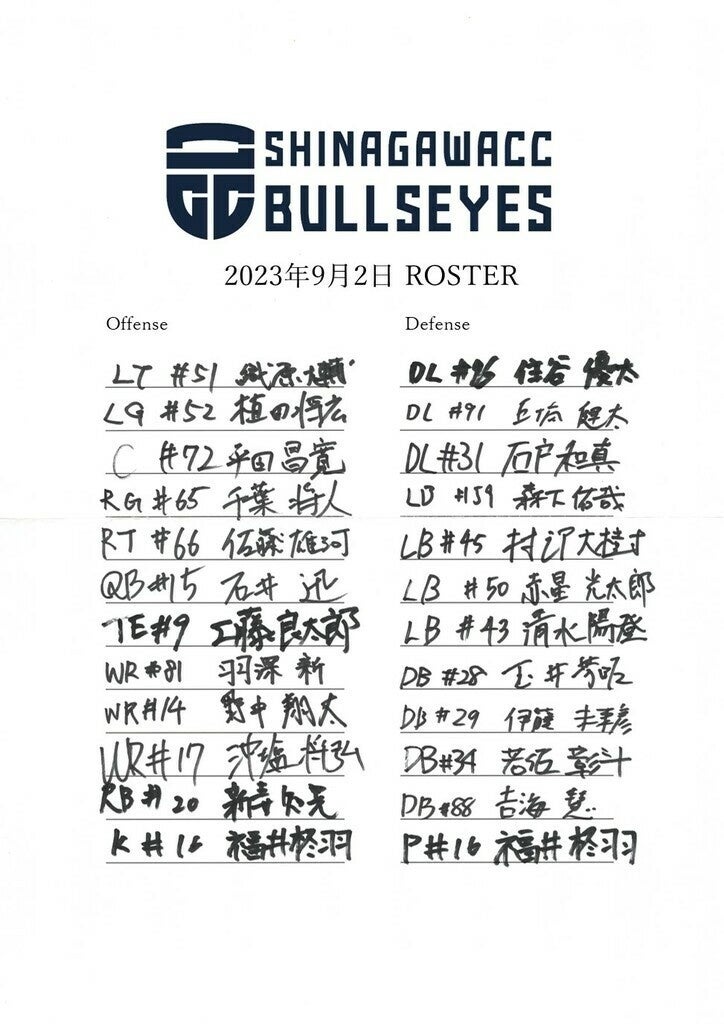 SHINAGAWACC
BULLSEYES
2023年9月2日 ROSTER
Offense
LT #51
LG #52 植田将宏
C #72 平田昌寛
RG #65 千葉将人
RT #66 佐藤雄河
QB #15 石井 迅
TE #9 工藤良太郎
WR #81 羽深 新
WR #14 野中 翔太
WR #17 沖塩将弘
RB #20
K #16 福井柊羽
Defense
DL 住谷 優太
DL #91 健太
DL #31 石戸和真
LB #59 森下佑哉
LB #45 村沢大樹
LB #50 赤星 光太郎
LB #43 清水陽登
DB #28 玉井
DB #29 伊藤
DB #34
DB #88 吉海 慧
P #16 福井柊羽